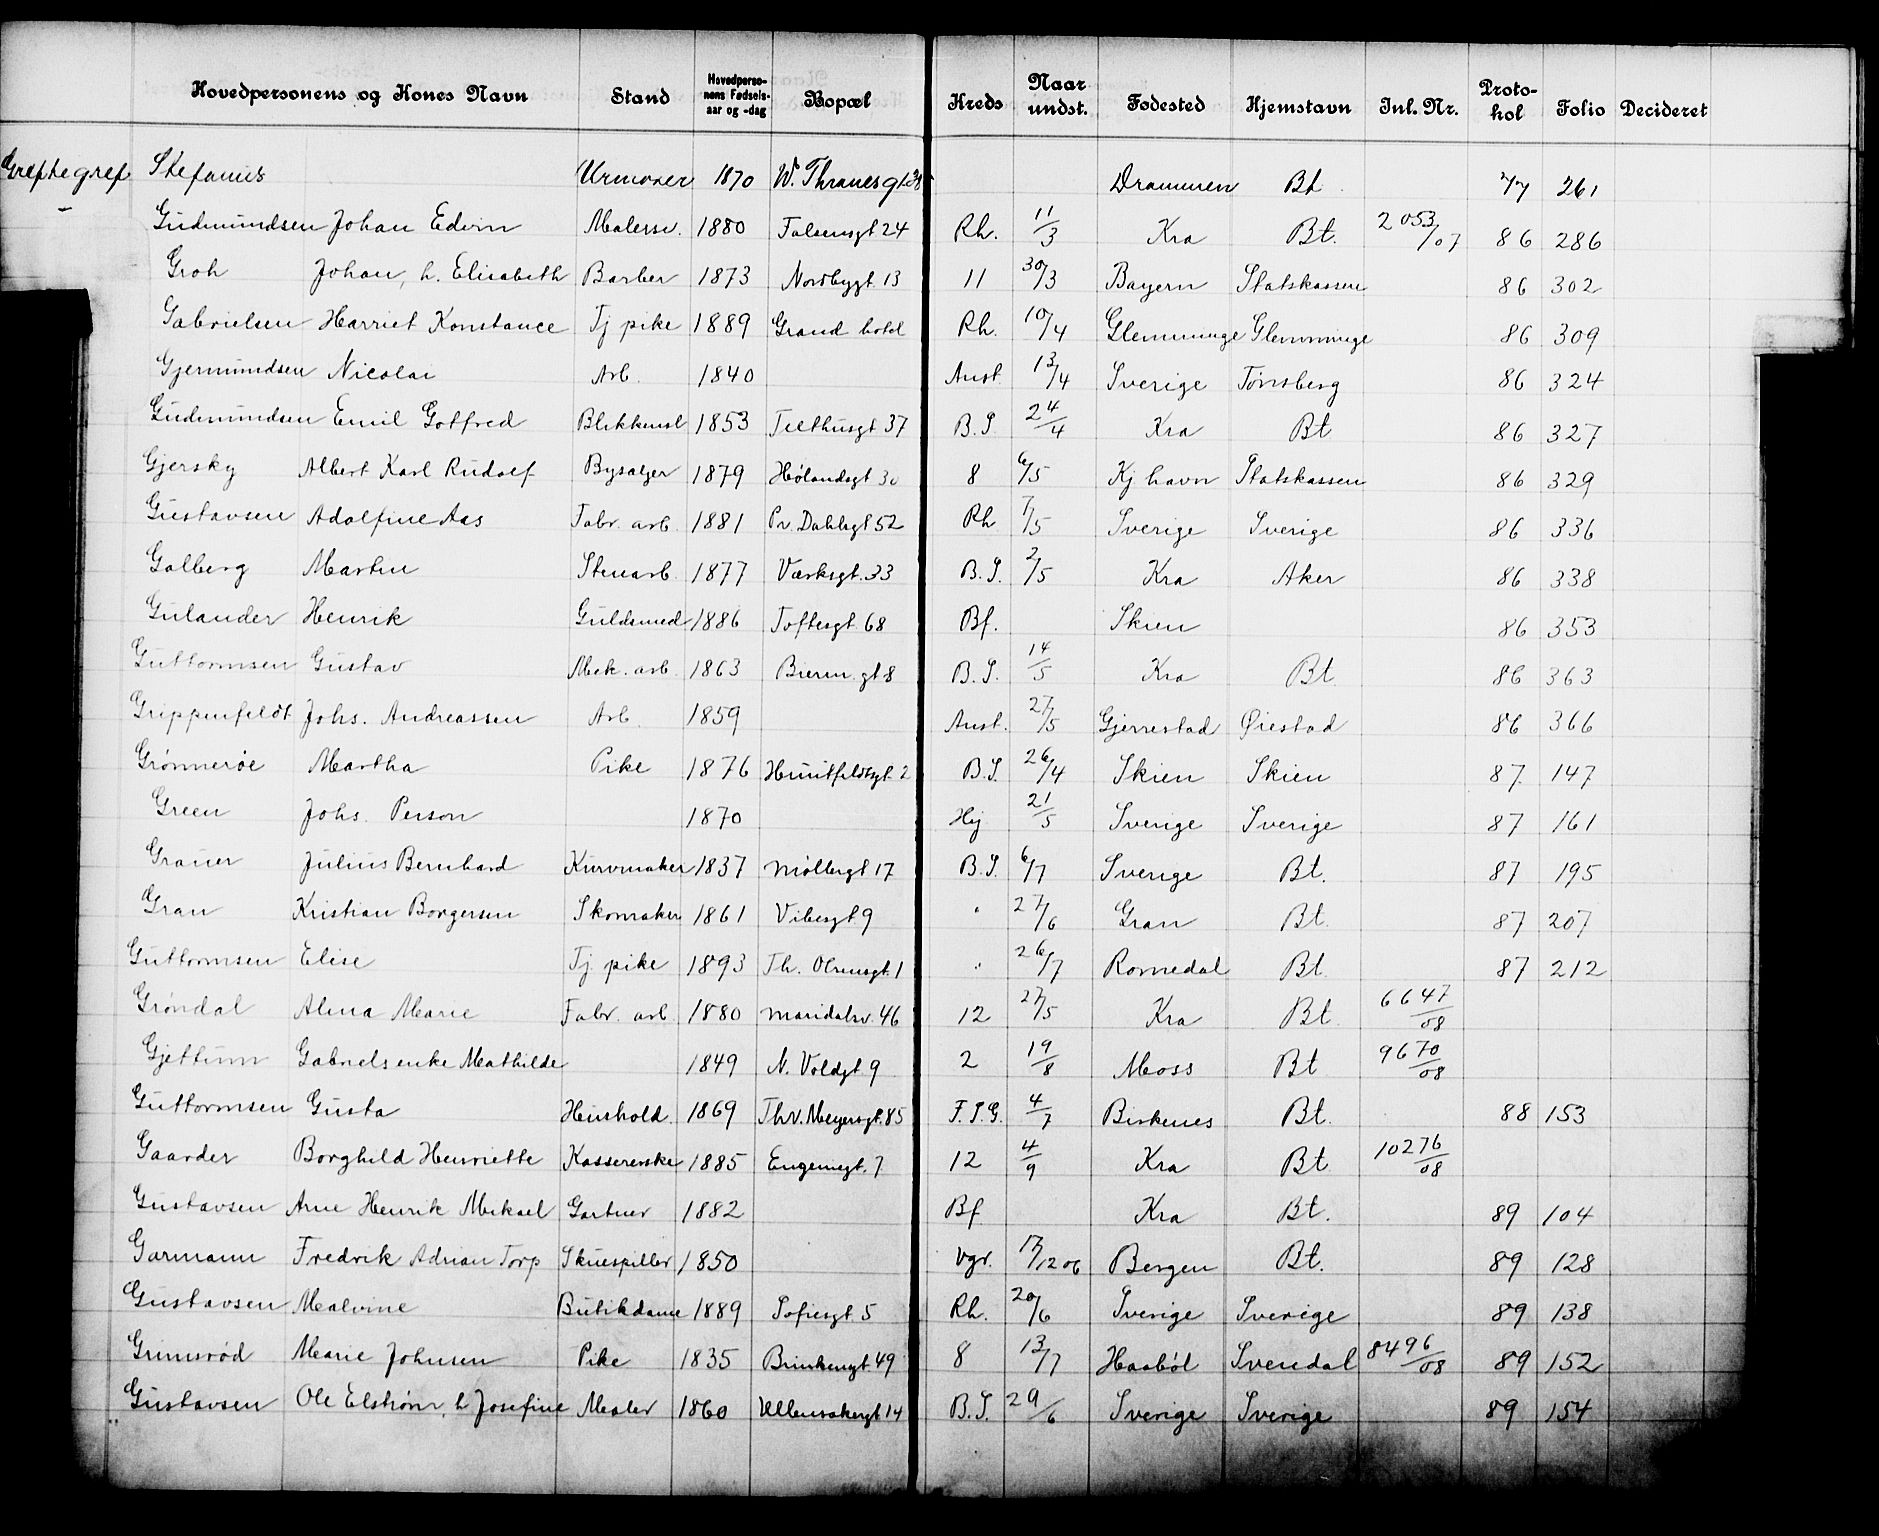 Hovedpersonens og Kones Navn Stand Hovedpersonens Fødselsaar og -dag Bopæl Kreds Naar undst. Fødested Hjemstavn Inl. Nr. Protokol Folio Decideret
Stefanus Urmaker 1870 W. Thranesgt. 38 Drammen Bt. 77 261
Gudmundsen Johan Edvin Malersv. 1880 Falsensgt 24 Rh. 11/3 Kra Bt. 2053/07 86 286
Groh Johan, h. Elisabeth Barber 1873 Nordbygt. 13 11 30/3 Bayern Statskassen 86 302
Gabrielsen Harriet Konstance Tj pike 1889 Grand hotel Rh. 10/4 Glemminge Glemminge 86 309
Gjermundsen Nicolai Arb. 1840 Anst. 13/4 Sverige Tønsberg 86 324
Gudmundsen Emil Gotfred Blikkensl 1853 Telthusgt 37 B.S. 24/4 Kra Bt 86 327
Gjersky Albert Karl Rudolf Bysælger 1879 Hølandsgt 30 8 6/5 Kj havn Statskassen 86 329
Gustavsen Adolfine Aas Fabr. arb. 1881 Pr. Dahlsgt 52 Rh 7/5 Sverige Sverige 86 336
Galberg Martin Stenarb. 1877 Værksgt. 33 B.S. 2/5 Kra Aker 86 338
Gulander Henrik Guldsmed 1886 Toftesgt. 68 Bf. Skien 86 353
Guttormsen Gustav Mek. arb. 1863 Bierm. gt 8 B.S. 14/5 Kra Bt 86 363
Grippenfeldt Johs. Andreassen Arb. 1859 Anst. 27/5 Gjerrestad Øiestad 86 366
Grønnerøe Martha Pike 1876 Huitfeldtsgt. 2 B.S. 26/4 Skien Skien 87. 147
Green Johs. Person 1870 Hj 21/5 Sverige Sverige 87 161
Grauer Julius Bernhard Kurvmaker 1837 Møllergt 17 B.S. 6/7 Sverige Bt. 87 195
Gran Kristian Borgersen Skomaker 1861 Vibesgt 9 " 27/6 Gran Bt. 87 207
Guttormsen Elise Tj. pike 1893 Th. Olsensgt. 1 " 26/7 Romedal Bt. 87 212
Grøndal Alma Marie Fabr. arb. 1880 Maridalsv. 46 12 27/5 Kra Bt 6647/08
Gjettum Gabrielsenke Mathilde 1849 N. Voldgt. 9 2 19/8 Moss Bt 9670/08
Guttormsen Gusta Hushold. 1869 Thv. Meyersgt. 85 F.S.G. 4/7 Birkenes Bt. 88 153
Gaarder Borghild Henriette Kassererske 1885 Engenigt. 7 12 4/9 Kra Bt 10276/08
Gustavsen Arne Henrik Mikael Gartner 1882 Bf Kra Bt. 89 104
Garmann Fredrik Adrian Torp Skuespiller 1850 Vgr. 17/12 06 Bergen Bt. 89 128
Gustavsen Malvine Butikdame 1889 Sofiesgt 5 Rh. 20/6 Sverige Sverige 89 138
Grimsrød Marie Johnsen Pike 1835 Brinkengt. 49 8 13/7 Haabøl Svendal 8496/08 89 152
Gustavsen Ole Elstrøm, h Josefine Maler 1860 Ullensakergt 14 B.S. 29/6 Sverige Sverige 89 154